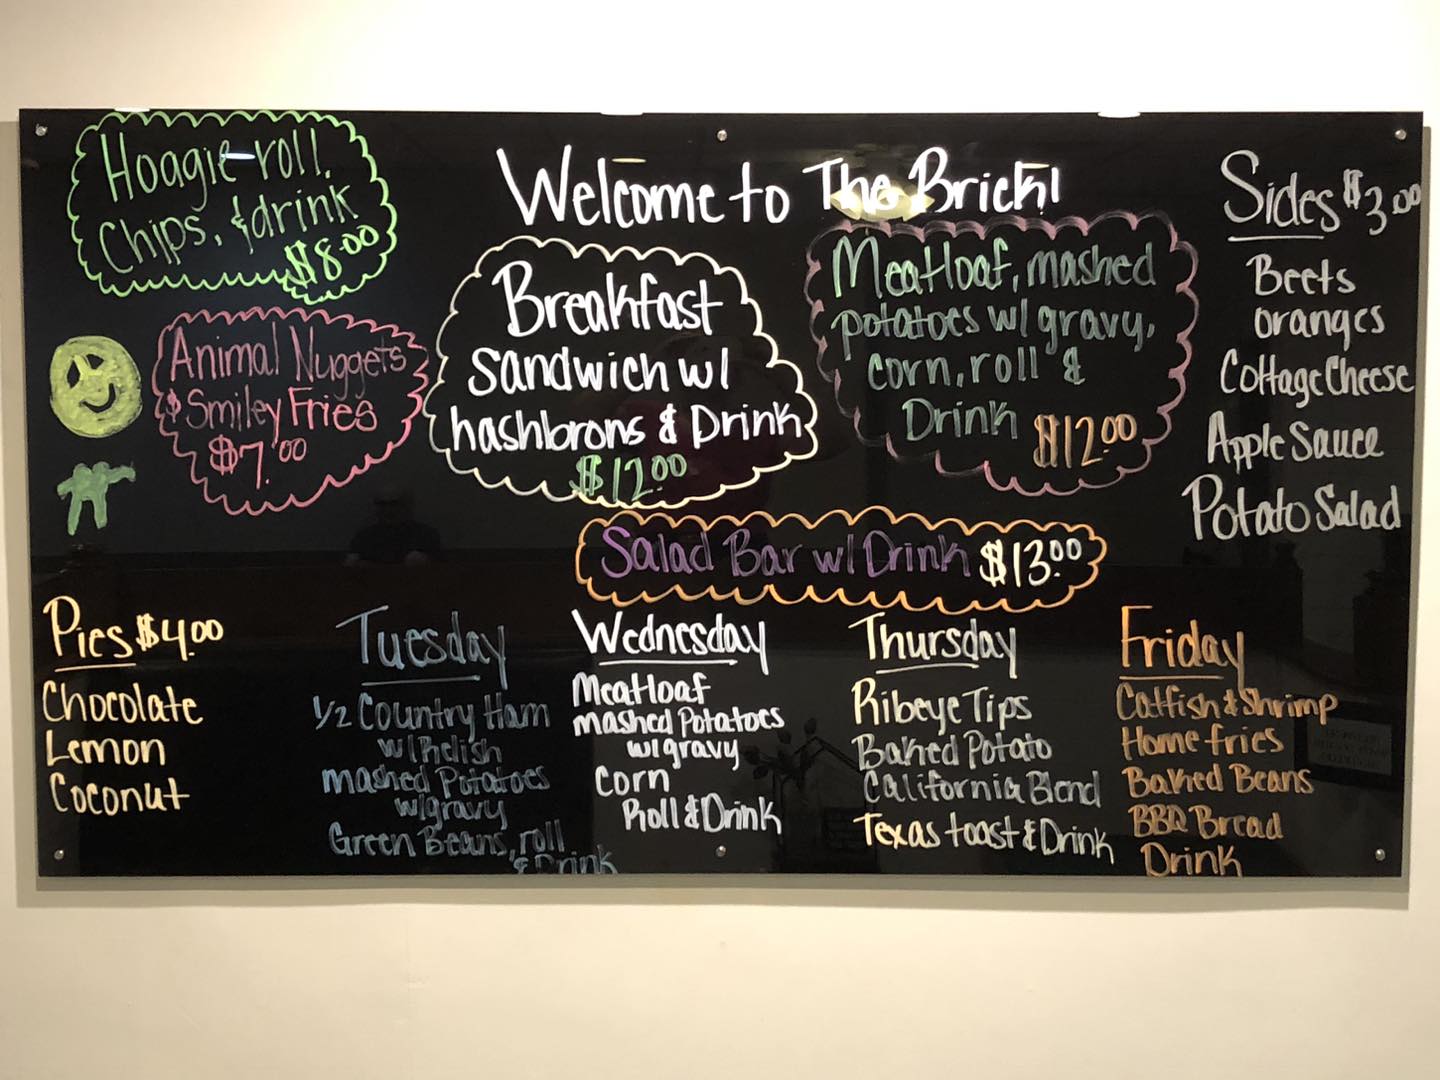 Welcome to The Brick!
Hoagie roll,
Chips, & drink
$8.00
Animal Nuggets
& Smiley Fries
$7.00
Breakfast
Sandwich w/
hashbrons & Drink
$12.00
Meatloaf, mashed
potatoes w/ gravy,
corn, roll &
Drink $12.00
Sides $3.00
Beets
oranges
Cottage Cheese
Apple Sauce
Potato Salad
Salad Bar w/ Drink $13.00
Pies $4.00
Chocolate
Lemon
Coconut
Tuesday
1/2 Country Ham
w/ Relish
mashed Potatoes
w/gravy
Green Beans, roll
& Drink
Wednesday
Meatloaf
mashed Potatoes
w/ gravy
Corn
Roll & Drink
Thursday
Ribeye Tips
Baked Potato
California Blend
Texas toast & Drink
Friday
Catfish & Shrimp
Home fries
Baked Beans
BBQ Bread
Drink